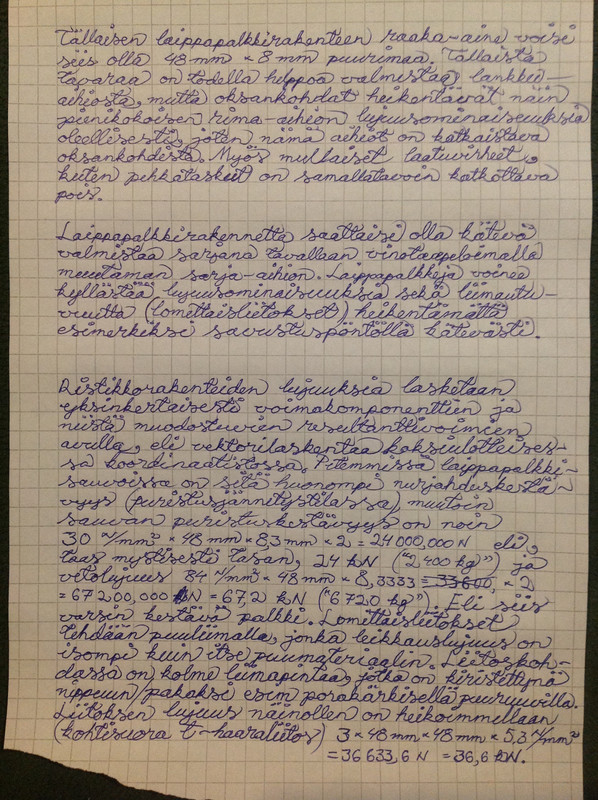 Tällaisen laippapalkkirakenteen raaka-aine voisi
siis olla 48 mm × 8 mm puurimaa. Tällaista
tavaraa on todella helppoa valmistaa lankku-
aihiosta, mutta oksankohdat heikentävät näin
pienikokoisen rima-aihion lujuusominaisuuksia
oleellisesti, joten nämä aihiot on katkaistava
oksankohdista. Myös mullaiset laatuvirheet,
kuten pihkataskut on samallatavoin katkottava
pois.
Laippapalkkirakennetta saattaisi olla kätevä
valmistaa sarjana tavallaan vinotaapeloimalla
muutaman sarja-aihion. Laippapalkkeja voinee
kyllästää lujuusominaisuuksia sekä liimautu-
vuutta (lomittaisliitokset) heikentämättä
esimerkiksi savustuspöntöllä kätevästi.
Ristikkorakenteiden lujuuksia lasketaan
yksinkertaisesti voimakomponenttien ja
niistä muodostuvien resultanttivoimien
avulla, eli vektorilaskentaa kaksiulotteises-
sa koordinaatistossa. Pitemmissä laippapalkki-
sauvoissa on sitä huonompi nurjahduskestä-
vyys (puristusjännitystilassa) muutoin
sauvan puristuskestävyys on noin
30 N/mm² × 48 mm × 8,3 mm × 2 = 24 000,000 N eli,
taas mystisesti tasan, 24 kN ("2 400 kg") ja
vetolujuus 84 N/mm² × 48 mm × 8,3333 = 33 600, × 2
= 67 200,000 N = 67,2 kN ("6720 kg"). Eli siis
varsin kestävä palkki. Lomittaisliitokset
tehdään puuliimalla, jonka leikkauslujuus on
isompi kuin itse puumateriaalin. Liitoskoh-
dassa on kolme liimapintaa, jotka on kiristettynä
nippuun/pakaksi esim porakärkisellä puuruuvilla.
Liitoksen lujuus näinollen on heikoimmillaan
(kohtisuora T-haaraliitos) 3 × 48 mm × 48 mm × 5,3 N/mm²
= 36 633,6 N = 36,6 kN.